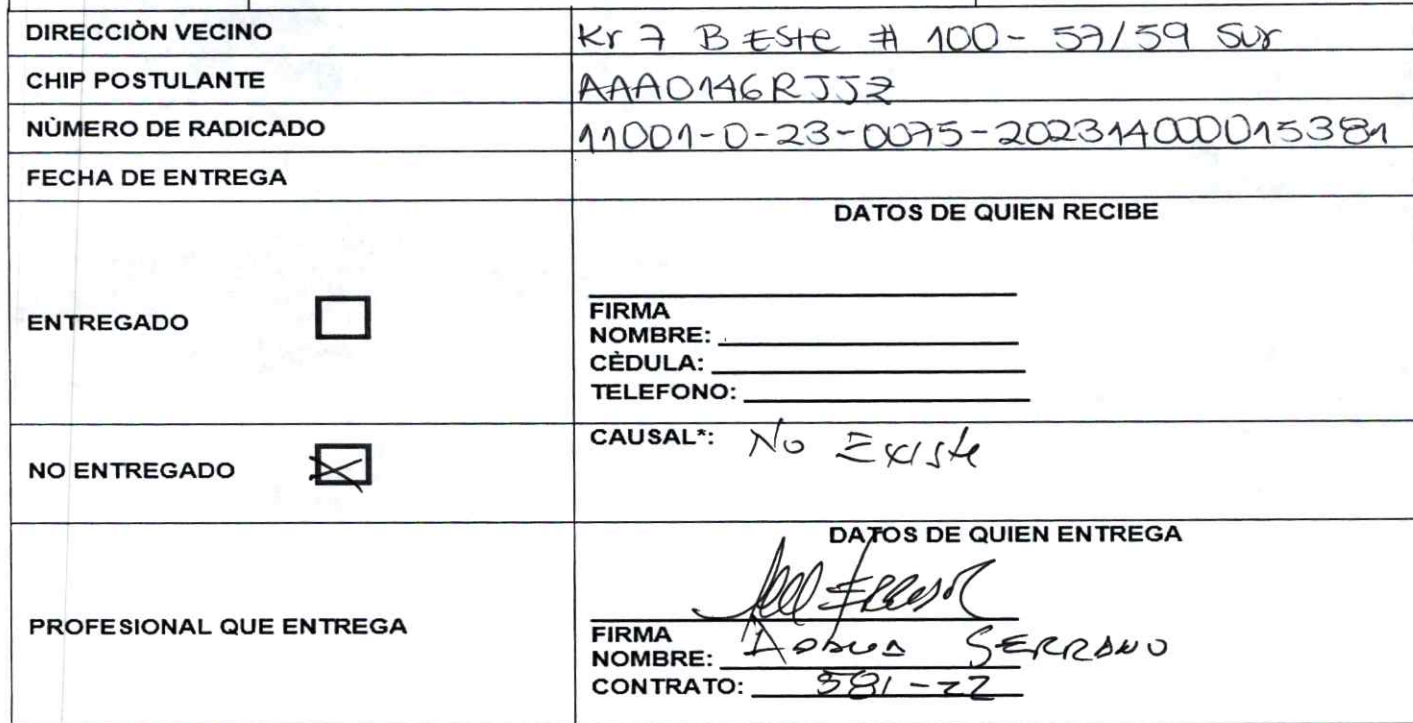 DIRECCIÒN VECINO Kr 7 B Este # 100 - 57/59 Sur
CHIP POSTULANTE AAA0146RJJZ
NÙMERO DE RADICADO 11001-0-23-0075-20231400015381
FECHA DE ENTREGA
DATOS DE QUIEN RECIBE
ENTREGADO
FIRMA
NOMBRE:
CÈDULA:
TELEFONO:
NO ENTREGADO
CAUSAL*: No Existe
DATOS DE QUIEN ENTREGA
PROFESIONAL QUE ENTREGA
FIRMA
NOMBRE: SERRANO
CONTRATO: 581-22